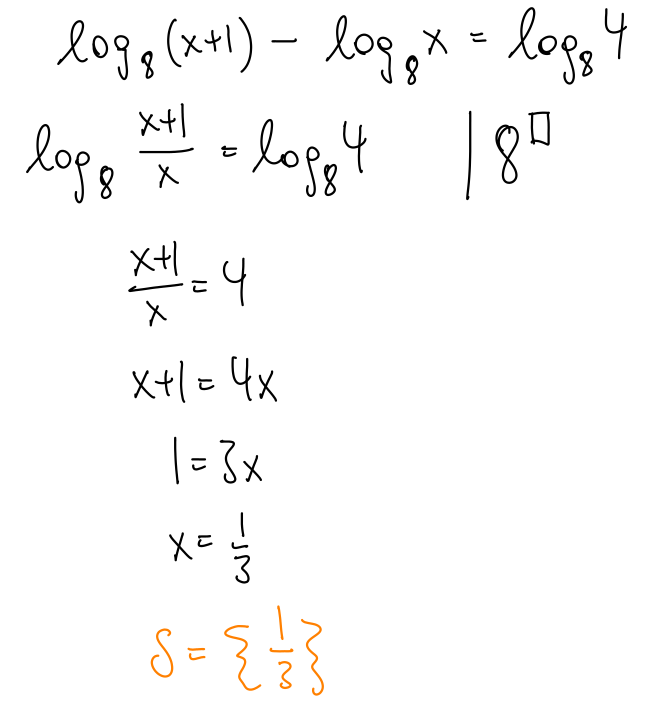 log₈(x+1) − log₈x = log₈4
log₈ (x+1)/x = log₈4 | 8^□
(x+1)/x = 4
x+1 = 4x
1 = 3x
x = 1/3
S = {1/3}